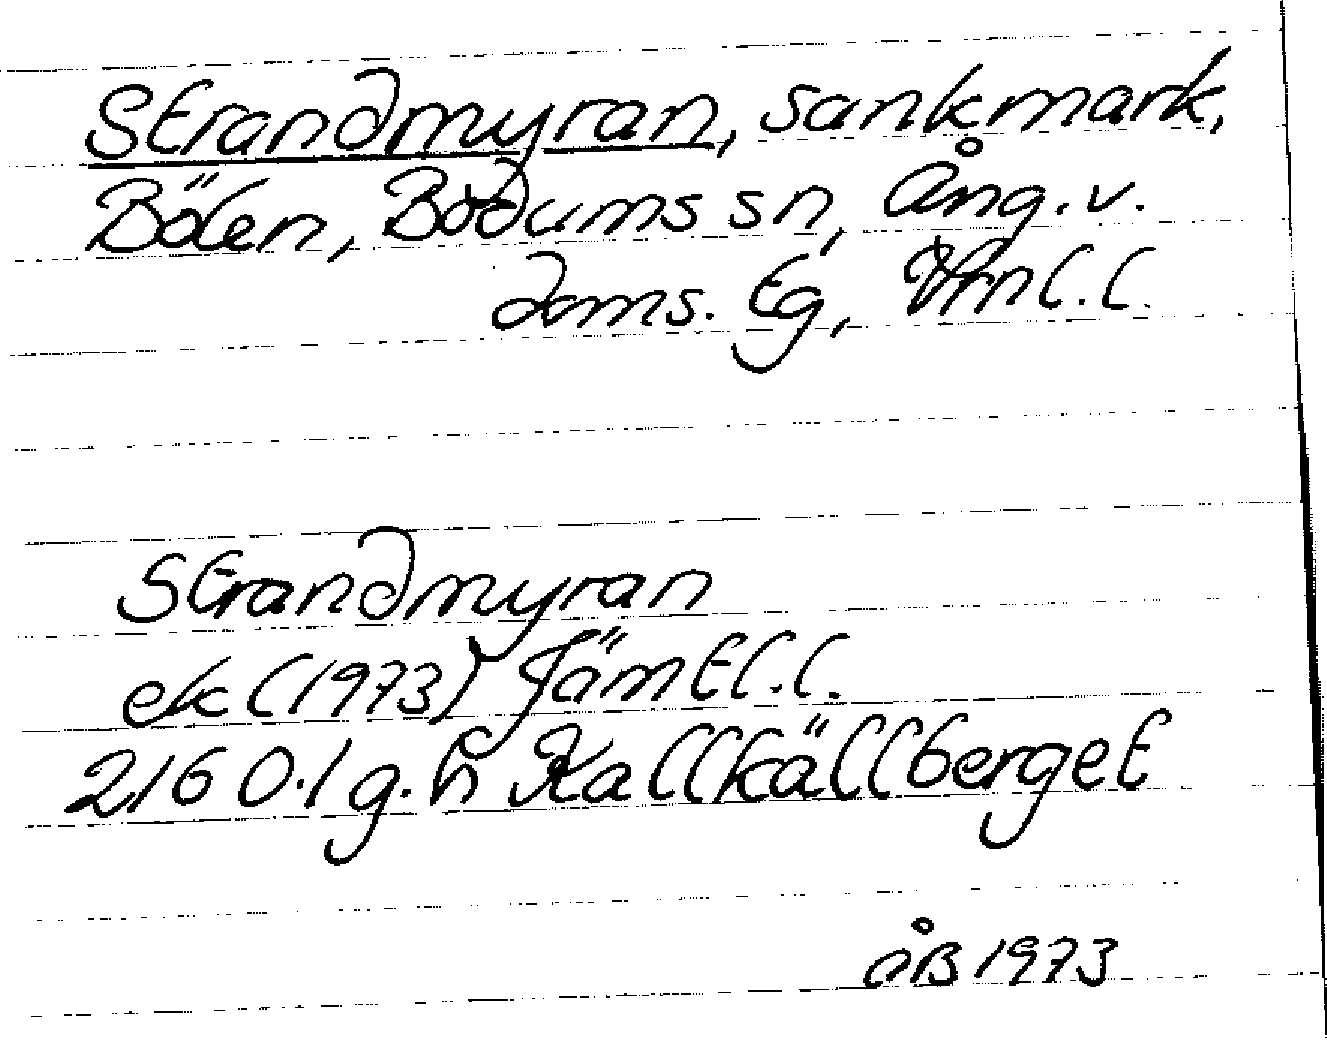 Strandmyran, sankmark,
Bölen, Bodums sn, Ång. v.
doms. Eg, Vrnl. l.
Strandmyran
ek (1973) Jämtl. l.
2160.1 g. h Kallkällberget
ÅB 1973